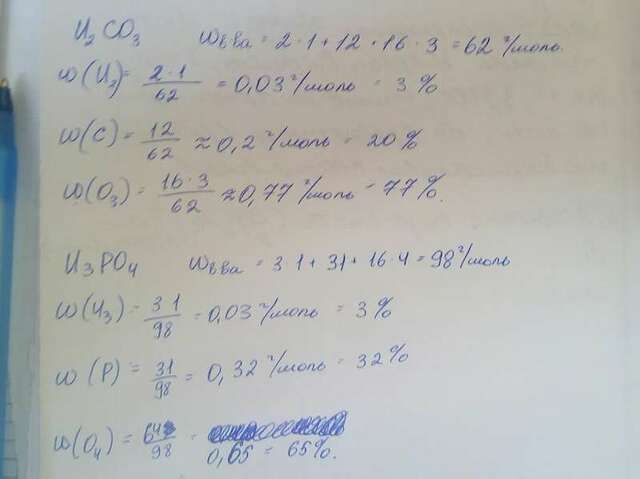 H₂CO₃ ω в-ва = 2·1+12+16·3 = 62 г/моль.
ω(H₂) = 2·1/62 = 0,03 г/моль = 3%
ω(C) = 12/62 ≈ 0,2 г/моль = 20%
ω(O₃) = 16·3/62 ≈ 0,77 г/моль = 77%.
H₃PO₄ ω в-ва = 3·1+31+16·4 = 98 г/моль
ω(H₃) = 3·1/98 = 0,03 г/моль = 3%
ω(P) = 31/98 = 0,32 г/моль = 32%
ω(O₄) = 64/98 = 0,65 = 65%.